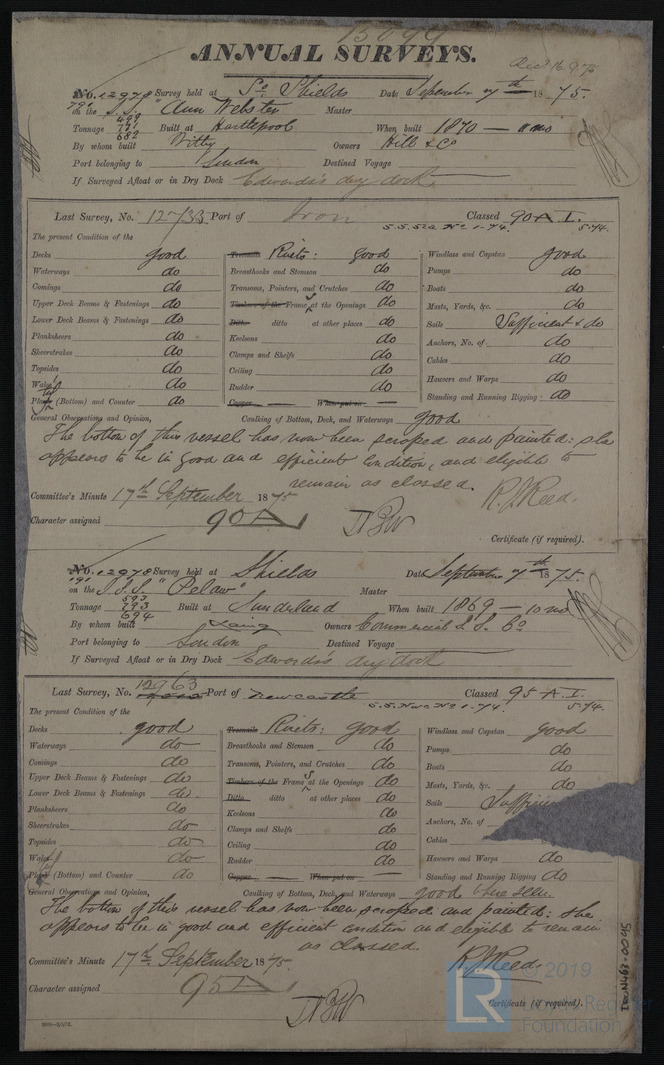 13099
ANNUAL SURVEYS.
Recd 16.9.75
No. 12978 Survey held at So Shields Date September 7th 1875.
791 on the S.S. "Ann Webster" Master
499
Tonnage 771 Built at Hartlepool When built 1870 — mo
682
By whom built Owners Hill & Co
Port belonging to London Destined Voyage
If Surveyed Afloat or in Dry Dock Edwards's dry dock.
Last Survey, No. 12733 Port of Iron Classed 90 A.I.
S.S. No 1-74. 5.74.
The present Condition of the
Decks good Treenails Rivets: good Windlass and Capstan good
Waterways do Breasthooks and Stemson do Pumps do
Comings do Transoms, Pointers, and Crutches do Boats do
Upper Deck Beams & Fastenings do Timbers of the Frames at the Openings do Masts, Yards, &c. do
Lower Deck Beams & Fastenings do Ditto ditto at other places do Sails Sufficient & do
Planksheers do Keelsons do Anchors, No. of do
Sheerstrakes do Clamps and Shelfs do Cables do
Topsides do Ceiling do Hawsers and Warps do
Wales do Rudder do Standing and Running Rigging do
Plates (Bottom) and Counter do Copper — When put on —
General Observations and Opinion, Caulking of Bottom, Deck, and Waterways good
The bottom of this vessel has now been scraped and painted: she
appears to be in good and efficient condition, and eligible to
remain as classed.
R. J. Reed.
Committee's Minute 17th September 1875
Character assigned 90A
Certificate (if required).
No. 12978 Survey held at Shields Date September 7th 1875.
191 on the S.S. "Pelaw" Master
593
Tonnage 793 Built at Sunderland When built 1869 — 10 mo
694
By whom built Laing Owners Commercial S. S. Co
Port belonging to London Destined Voyage
If Surveyed Afloat or in Dry Dock Edwards's dry dock
Last Survey, No. 12963 Port of Newcastle Classed 95 A.I.
S.S. Nwc No 1-74. 5.74.
The present Condition of the
Decks good Treenails Rivets: good Windlass and Capstan good
Waterways do Breasthooks and Stemson do Pumps do
Comings do Transoms, Pointers, and Crutches do Boats do
Upper Deck Beams & Fastenings do Timbers of the Frames at the Openings do Masts, Yards, &c. do
Lower Deck Beams & Fastenings do Ditto ditto at other places do Sails Suffici
Planksheers do Keelsons do Anchors, No. of
Sheerstrakes do Clamps and Shelfs do Cables
Topsides do Ceiling do Hawsers and Warps do
Wales do Rudder do Standing and Running Rigging do
Plates (Bottom) and Counter do Copper — When put on —
General Observations and Opinion, Caulking of Bottom, Deck, and Waterways good where seen.
The bottom of this vessel has now been scraped and painted: she
appears to be in good and efficient condition and eligible to remain
as classed.
R. J. Reed.
Committee's Minute 17th September 1875.
Character assigned 95A
Certificate (if required).
IRON463-0045
© 2019
LR
Lloyd's Register
Foundation